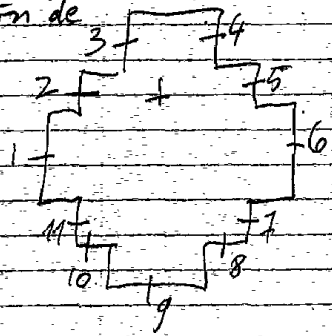 de
3 4
2 + 5
1 6
11 7
10 8
9